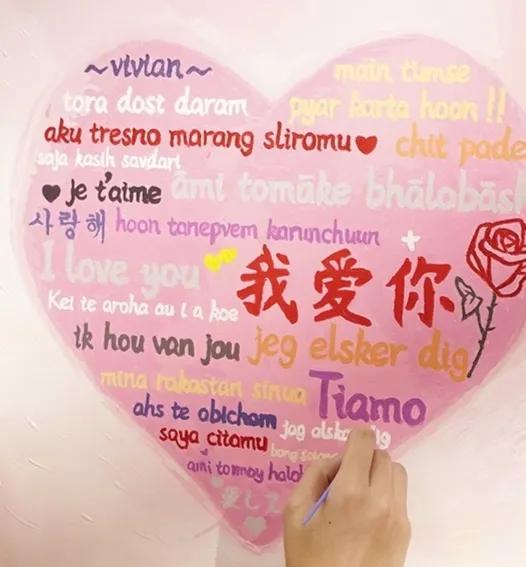 ~vivian~
main tumse
tora dost daram
pyar karta hoon !!
aku tresno marang sliromu
chit pade
saja kasih savdari
je t'aime
ami tomāke bhālobās
사랑해
hoon tanepvem karunchuun
I love you
我爱你
Kei te aroha au i a koe
ik hou van jou
jeg elsker dig
mina rakastan sinua
Tiamo
ahs te obichom
jag alska dig
saya citamu
ami tomay halob
愛し